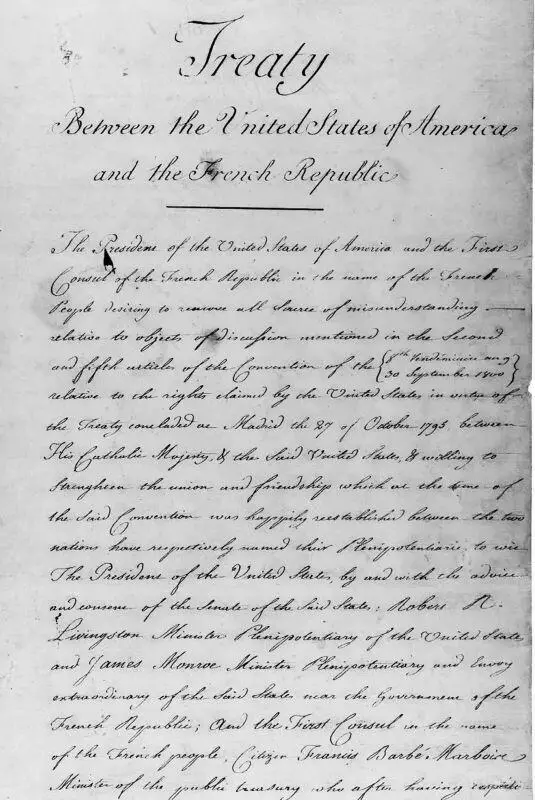 Treaty
Between the United States of America
and the French Republic
The President of the United States of America and the First
Consul of the French Republic in the name of the French
People desiring to remove all Source of misunderstanding
relative to objects of discussion mentioned in the Second
and fifth articles of the Convention of the {8th Vendémiaire an 9
30 September 1800}
relative to the rights claimed by the United States in virtue of
the Treaty concluded at Madrid the 27 of October 1795, between
His Catholic Majesty, & the Said United States, & willing to
Strengthen the union and friendship which at the time of
the Said Convention was happily reestablished between the two
nations have respectively named their Plenipotentiaries, to wit
The President of the United States, by and with the advice
and consent of the Senate of the Said States; Robert R.
Livingston Minister Plenipotentiary of the United States
and James Monroe Minister Plenipotentiary and Envoy
extraordinary of the Said States near the Government of the
French Republic; And the First Consul in the name
of the French people, Citizen Francis Barbé Marbois
Minister of the public treasury who after having